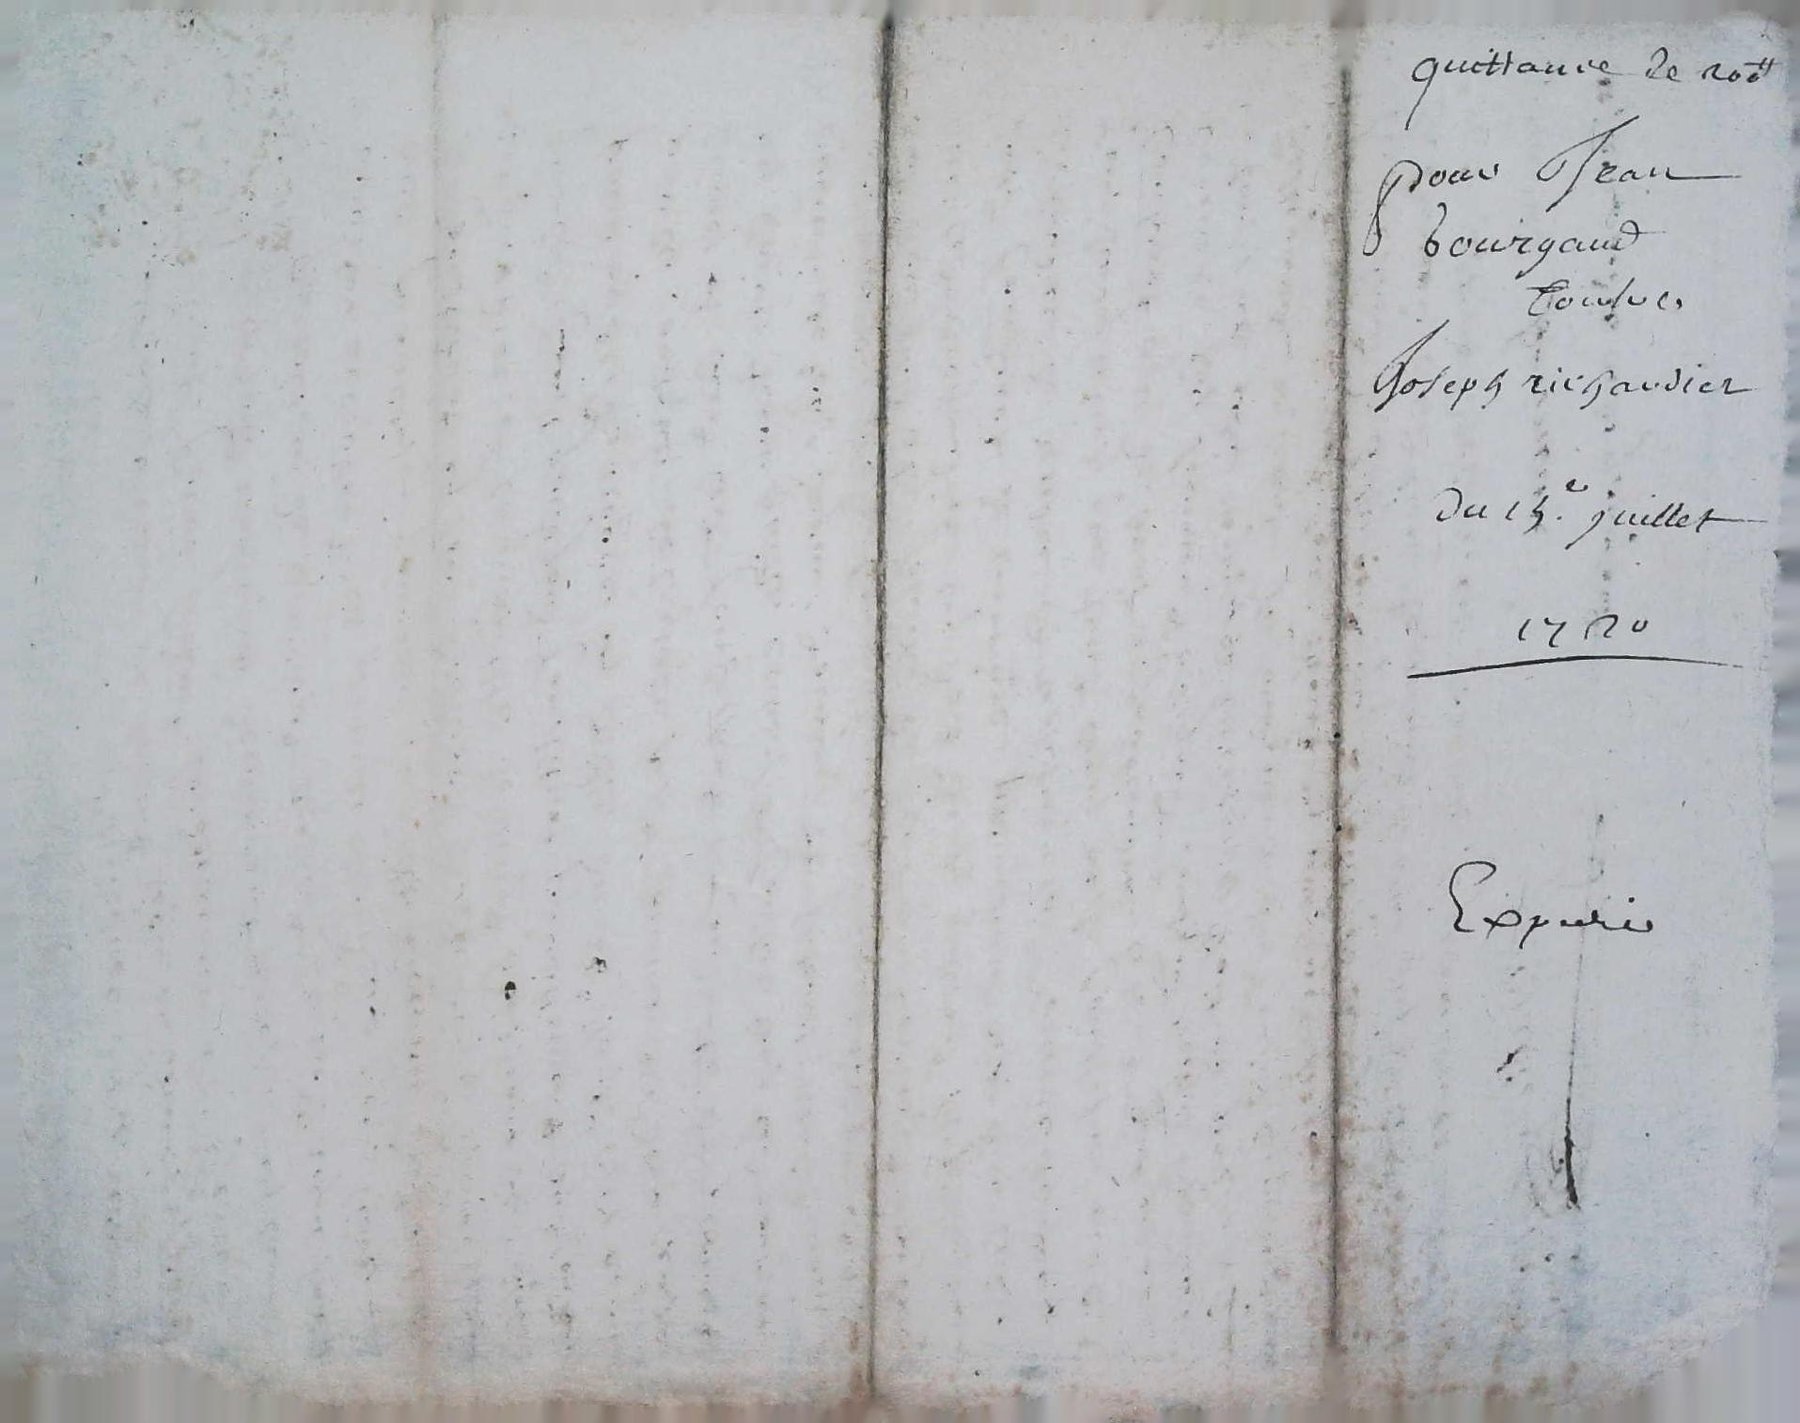 quittance de 200ᵗᵗ
pour Jean
bourgaud
Contre
Joseph richardier
du 15.e juillet
1720
Expedié